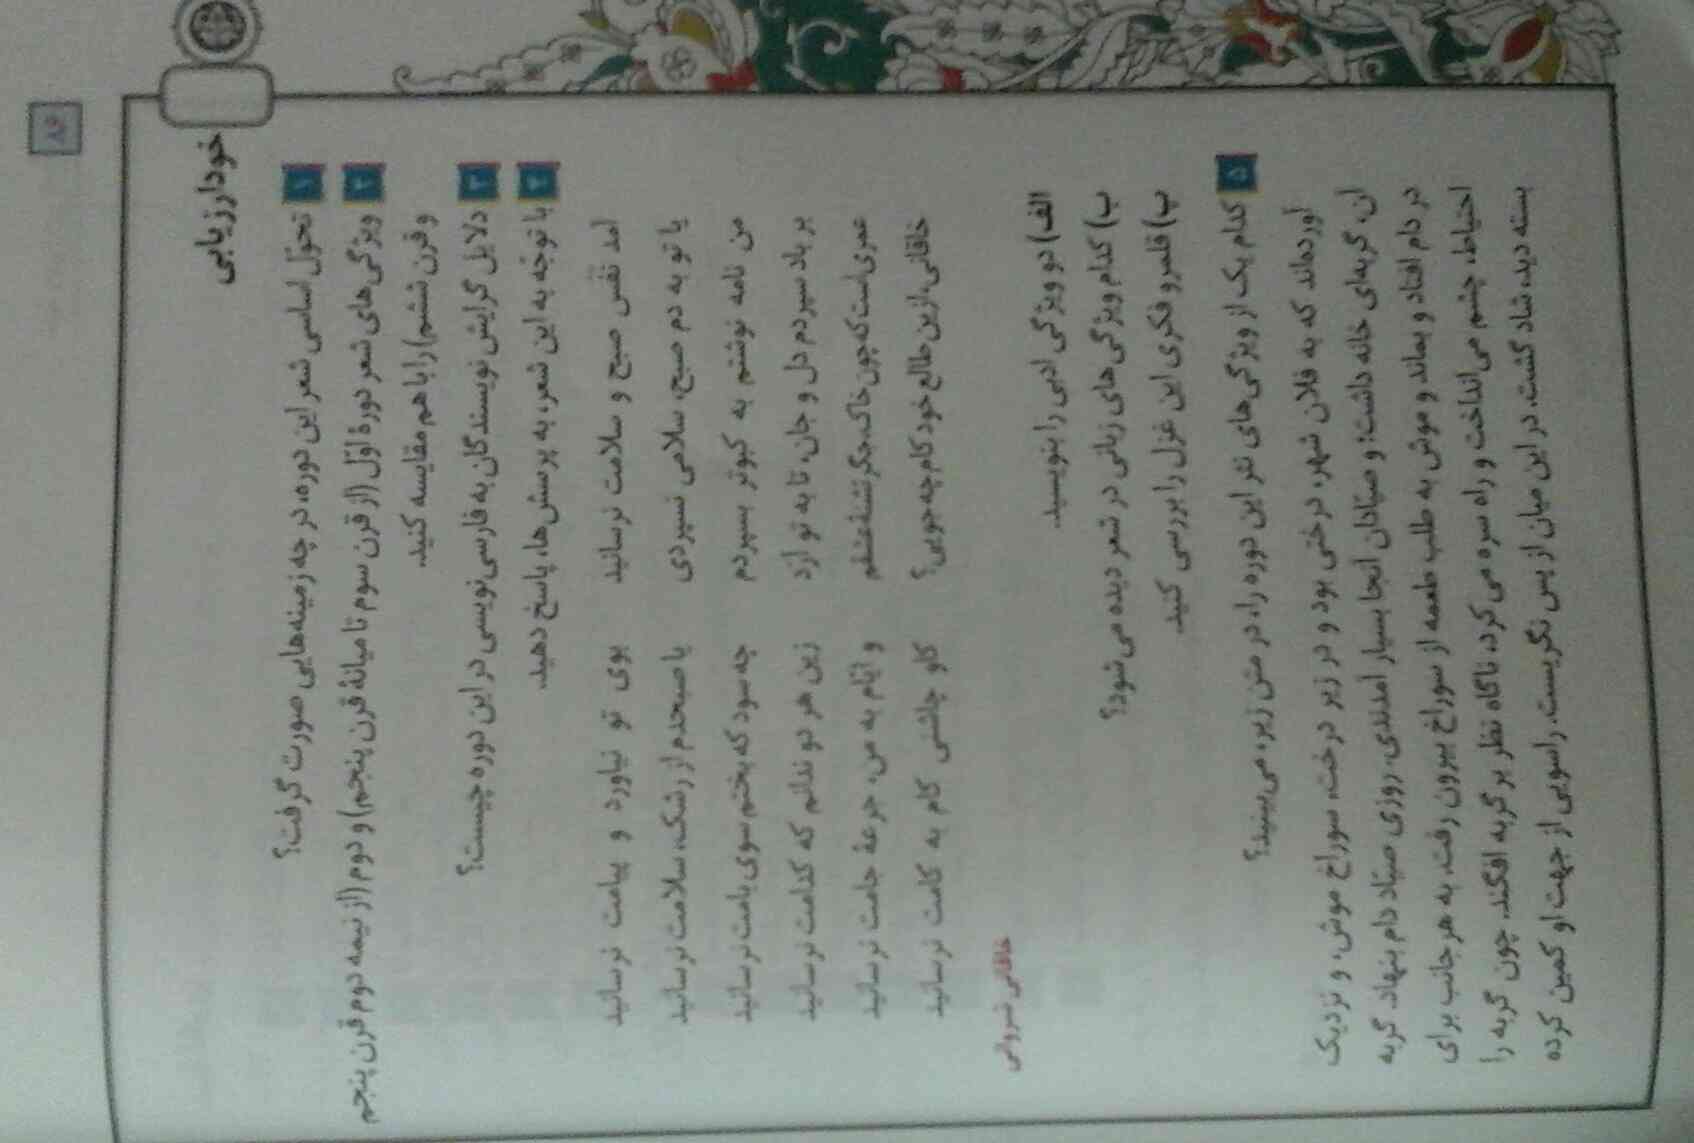 خودارزیابی
۱ تحوّل اساسی شعر این دوره، در چه زمینه‌هایی صورت گرفت؟
۲ ویژگی‌های شعر دورهٔ اوّل (از قرن سوم تا میانهٔ قرن پنجم) و دوم (از نیمه دوم قرن پنجم
و قرن ششم) را با هم مقایسه کنید.
۳ دلایل گرایش نویسندگان به فارسی‌نویسی در این دوره چیست؟
۴ با توجّه به این شعر، به پرسش‌ها، پاسخ دهید.
آمد نفس صبح و سلامت نرسانید بوی تو نیاورد و پیامت نرسانید
یا تو به دم صبح، سلامی نسپردی یا صبحدم از رشک، سلامت نرسانید
من نامه نوشتم به کبوتر بسپردم چه سود که بختم سوی بامت نرسانید
بر باد سپردم دل و جان، تا به تو آرد زین هر دو ندانم که کدامت نرسانید
عمری است که چون خاک، جگر تشنهٔ عشقم و ایّام به من، جرعهٔ جامت نرسانید
خاقانی، ازین طالع خود کام چه جویی؟ کاو چاشنی کام به کامت نرسانید
خاقانی شروانی
الف) دو ویژگی ادبی را بنویسید.
ب) کدام ویژگی‌های زبانی در شعر دیده می‌شود؟
پ) قلمرو فکری این غزل را بررسی کنید.
۵ کدام یک از ویژگی‌های نثر این دوره را، در متن زیر، می‌بینید؟
آورده‌اند که به فلان شهر، درختی بود و در زیر درخت، سوراخ موش، و نزدیک
آن، گربه‌ای خانه داشت؛ و صیّادان آنجا بسیار آمدندی. روزی صیّاد دام بنهاد. گربه
در دام افتاد و بماند و موش به طلب طعمه از سوراخ بیرون رفت. به هر جانب برای
احتیاط، چشم می‌انداخت و راه سره می‌کرد، ناگاه نظر بر گربه افکند. چون گربه را
بسته دید، شاد گشت. در این میان از پس نگریست. راسویی از جهت او کمین کرده
۸۶